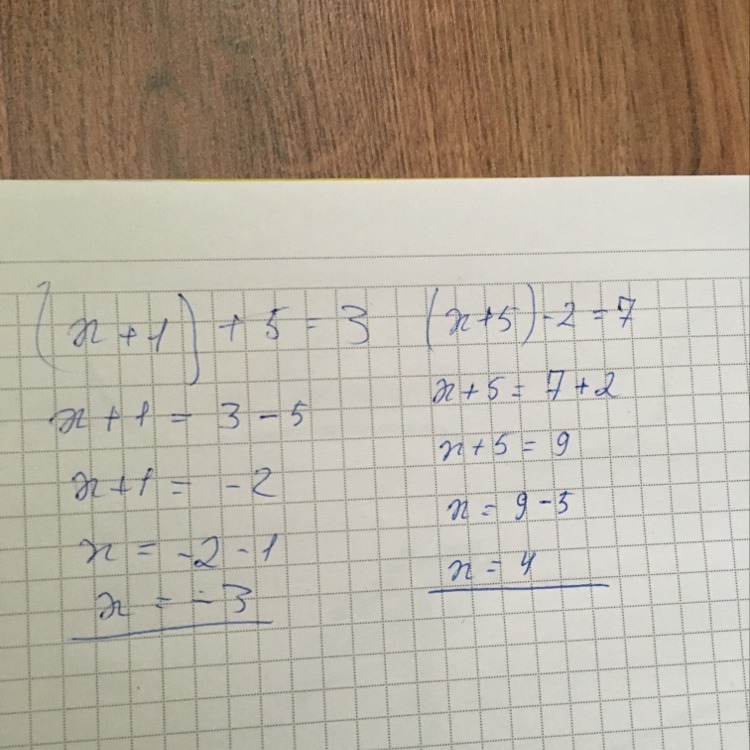 (x+1)+5=3
x+1=3-5
x+1=-2
x=-2-1
x=-3
(x+5)-2=7
x+5=7+2
x+5=9
x=9-5
x=4